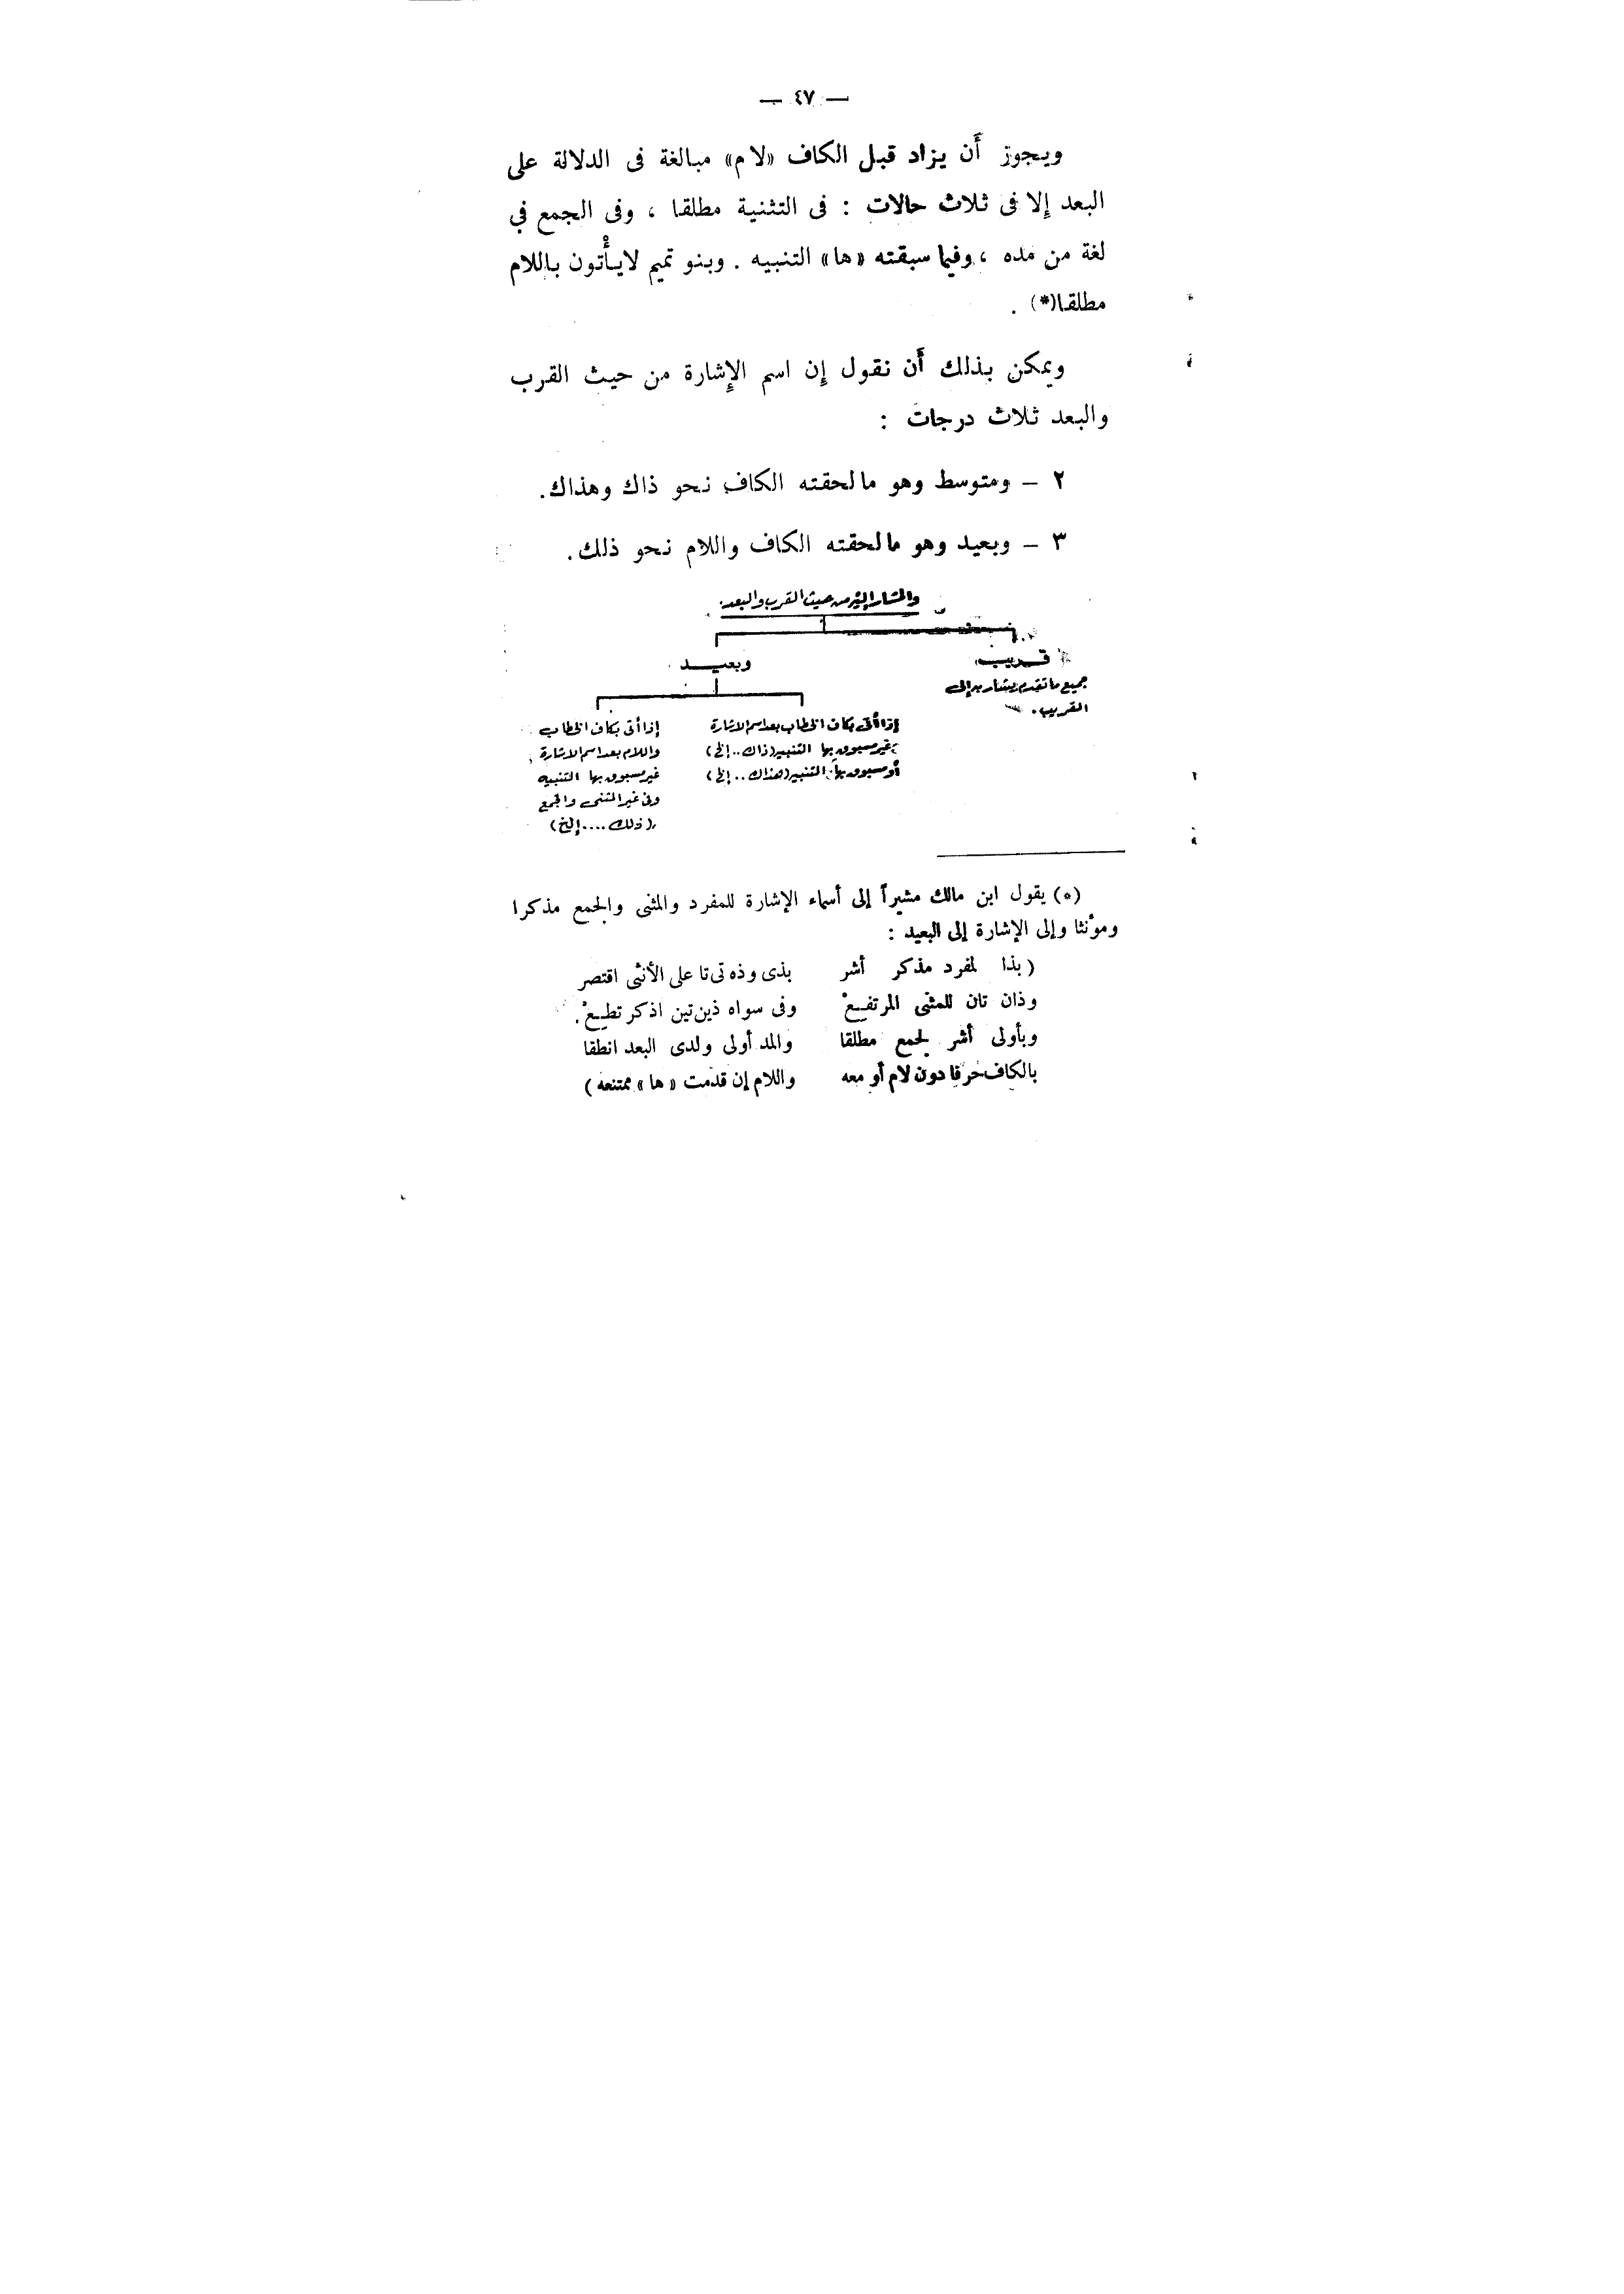 — ٤٧ —
ويجوز أَن يزاد قبل الكاف «لام» مبالغة فى الدلالة على
البعد إِلا فى ثلاث حالات : فى التثنية مطلقا ، وفى الجمع في
لغة من مده ، وفيما سبقته «ها» التنبيه . وبنو تميم لايأْتون باللام
مطلقا(*) .
ويمكن بذلك أَن نقول إِن اسم الإِشارة من حيث القرب
والبعد ثلاث درجات :
٢ – ومتوسط وهو مالحقته الكاف نحو ذاك وهذاك.
٣ – وبعيد وهو مالحقته الكاف واللام نحو ذلك.
والمشار إليه من حيث القرب والبعد.
قريب
وبعيد
جميع ما تقدم يشار به إلى
القريب.
إذا أتى بكاف الخطاب بعد اسم الاشارة
غير مسبوق بها التنبيه (ذاك.. إلخ)
أو مسبوق بها التنبيه (هذاك.. إلخ)
إذا أتى بكاف الخطاب
واللام بعد اسم الاشارة
غير مسبوق بها التنبيه
وفى غير المثنى والجمع
(ذلك .... إلخ)
(*) يقول ابن مالك مشيراً إلى أسماء الإشارة للمفرد والمثنى والجمع مذكرا
ومؤنثا وإلى الإشارة إلى البعيد :
( بذا لمفرد مذكر أشر بذى وذه تى تا على الأنثى اقتصر
وذان تان للمثنى المرتفعْ وفى سواه ذين تين اذكر تطعْ.
وبأولى أشر لجمع مطلقا والمد أولى ولدى البعد انطقا
بالكاف حرفا دون لام أو معه واللام إن قدمت «ها» ممتنعه )